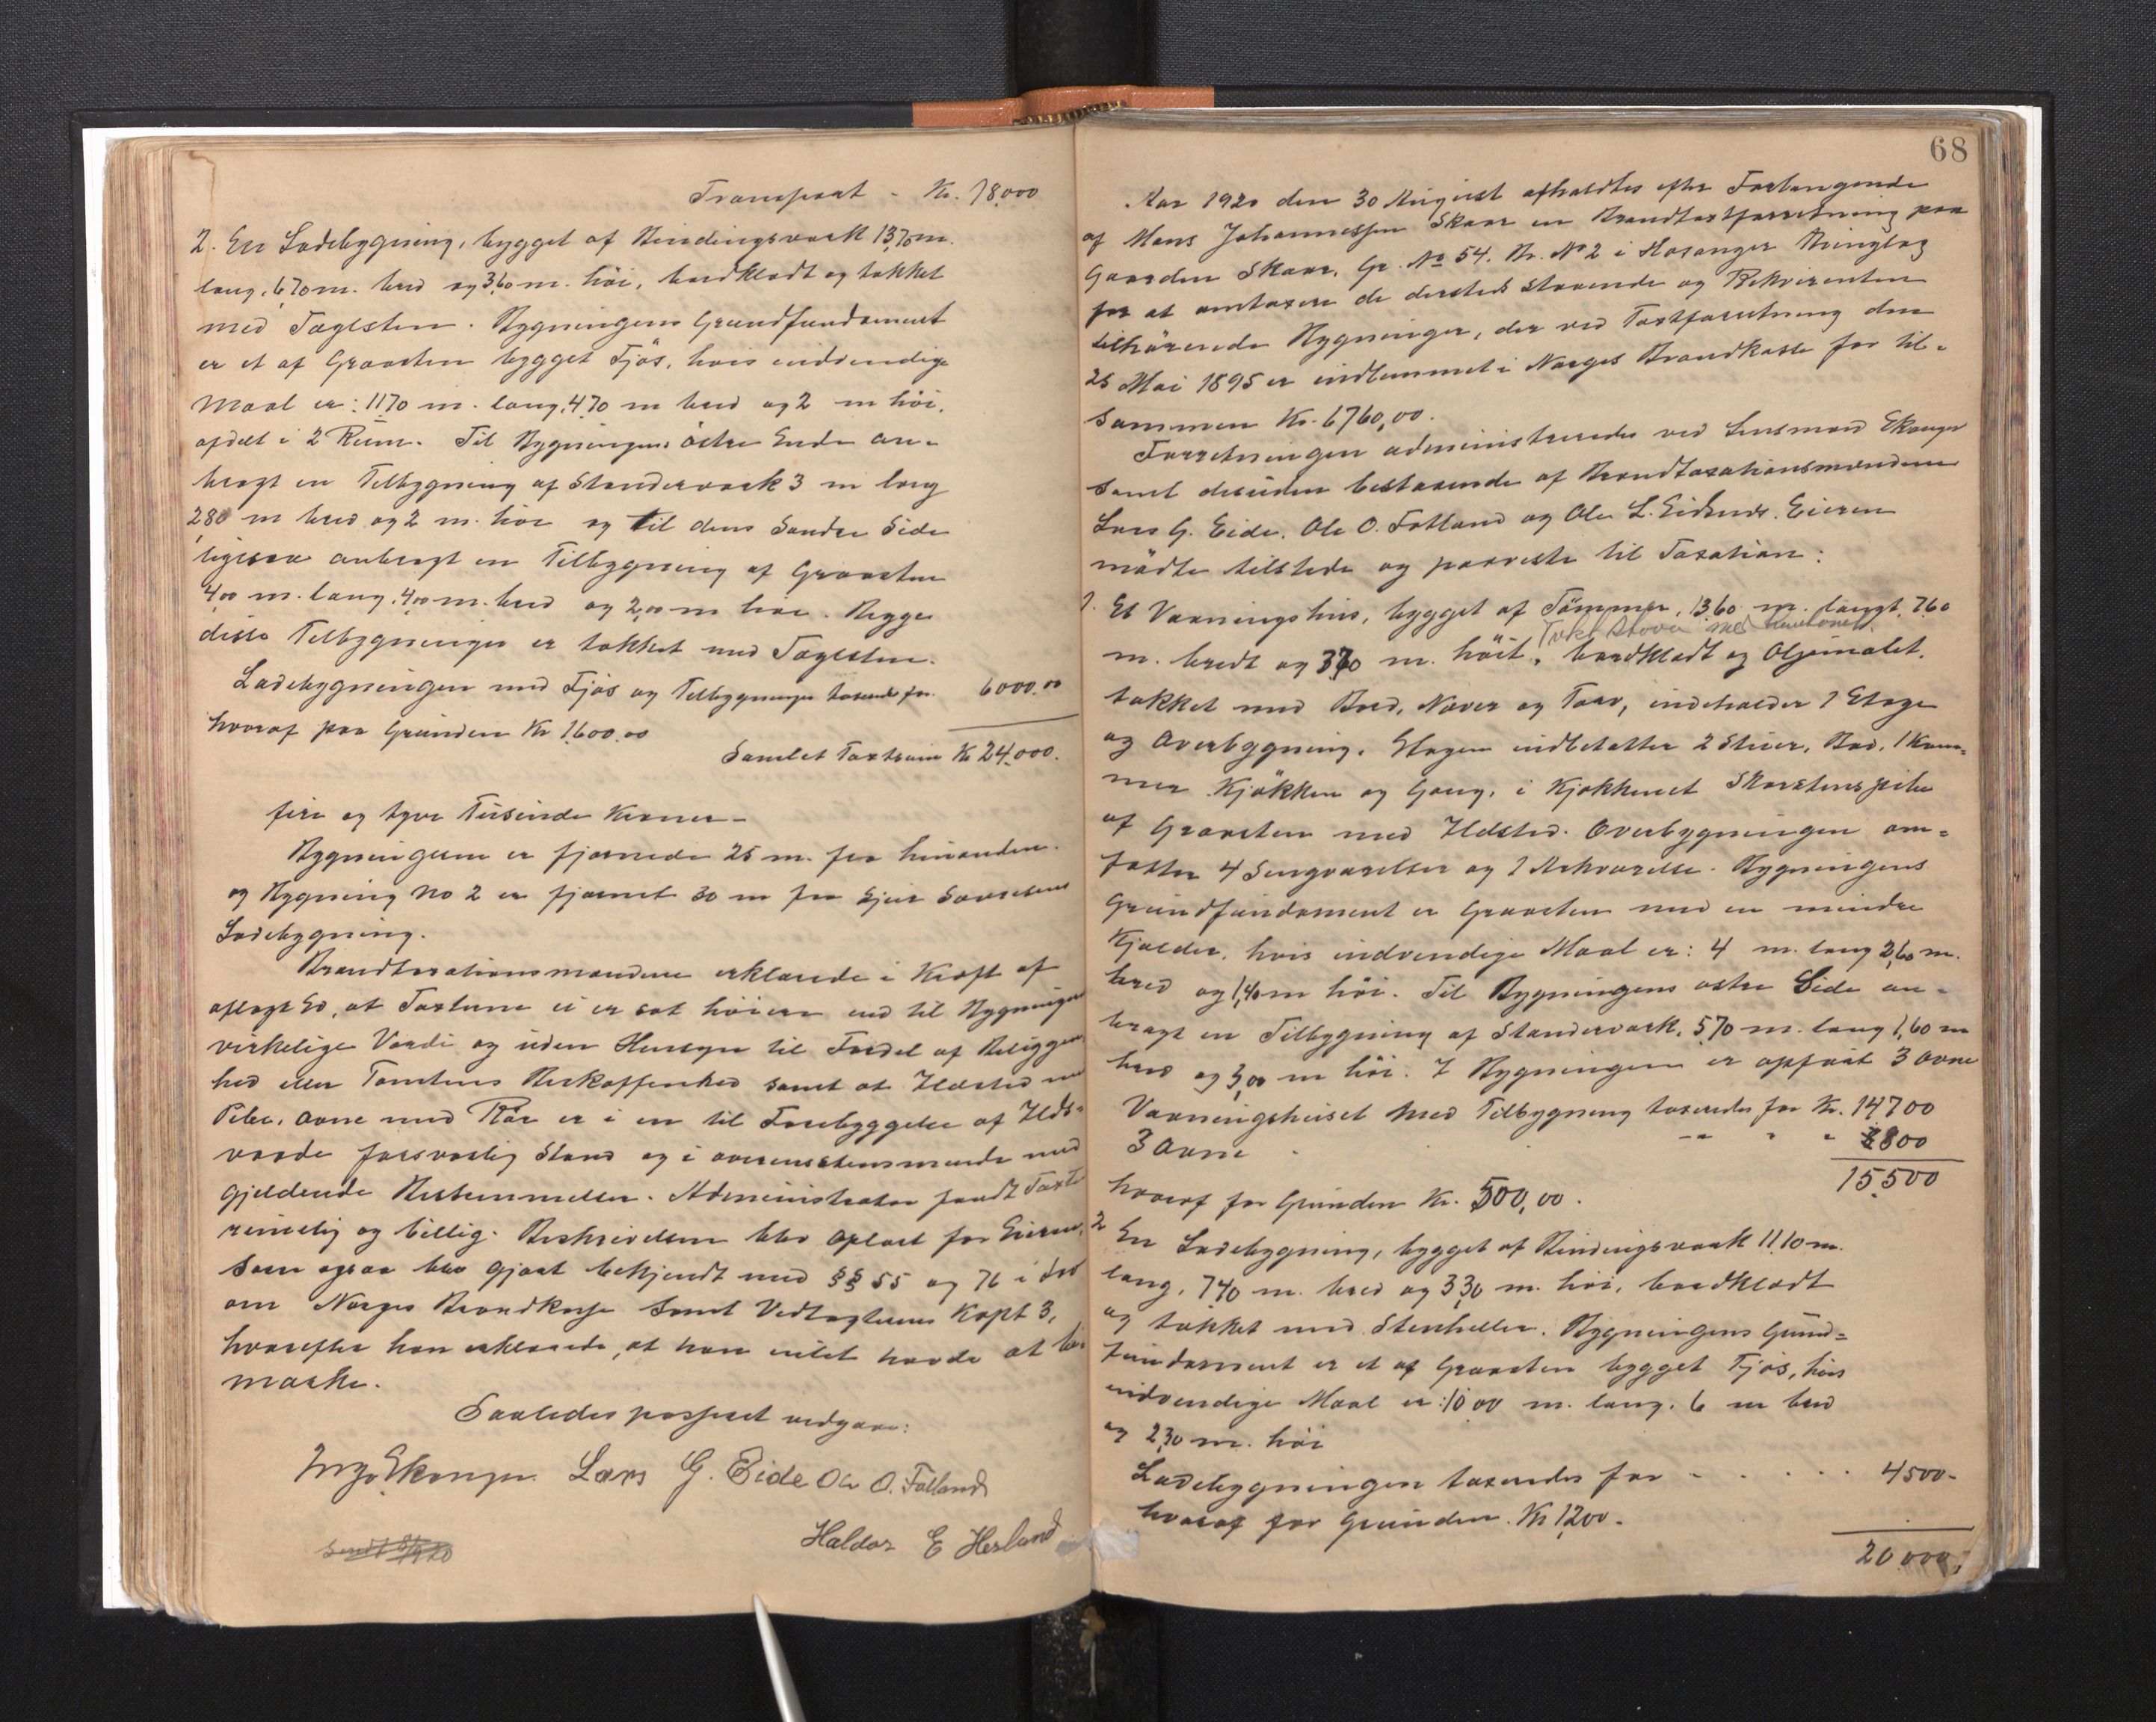 Transport - Kr. 18000
2. En Ladebygning, bygget af Bindingsværk 13,70 m.
lang, 6,70 m. bred og 3,60 m. höi, bordklædt og tækket
med Taglsten. Bygningens Grundfundament
er et af Graasten bygget Fjös, hvis indvendige
Maal er: 11,70 m. lang, 4,70 m bred og 2 m höi,
afdelt i 2 Rum. Til Bygningens östre Ende an-
bragt en Tilbygning af Standerværk 3 m lang
2,80 m bred og 2 m. höi og til dens Söndre Side
ligesaa anbragt en Tilbygning af Graasten
4,00 m. lang, 4,00 m. bred og 2,00 m höi. Begge
disse Tilbygninger er tækket med Taglsten.
Ladebygningen med Fjös og Tilbygninger taxeredes for 6000.00
hvoraf paa Grunden Kr 1600.00
Samlet Taxtsum Kr 24.000.
fire og tyve Tusinde Kroner -
Bygningerne er fjernede 25 m. fra hinanden
og Bygning No 2 er fjernet 30 m fra
Ladebygning.
Brandtaxationsmændene erklærede i Kraft af
aflagt Ed, at Taxterne ei er sat höiere end til Bygningens
virkelige Værdi og uden Hensyn til Fordel af Beliggen
hed eller Tomtens Beskaffenhed samt at Ildsted med
Pibe, Ovne med Rör er i en til Forebyggelse af Ilds-
vaade forsvarlig Stand og i overensstemmende med
gjeldende Bestemmelser. Administrator fandt Taxten
rimelig og billig. Beskrivelsen blev oplæst for Eieren,
som ogsaa blev gjort bekjendt med §§ 55 og 76 i Lov
om Norges Brandkasse samt Vedtægternes Kapt 3,
hvorefter han erklærede, at han intet havde at be
mærke.
Saaledes passeret vedgaar:
Ekanger Lars G. Eide Ole O. Fotland
Haldor E Herland
68
Aar 1920 den 30 August afholdtes efter Forlangende
af Mons Johannessen Skaar en Brandtaxtforretning paa
Gaarden Skaar, Gr. No 54. Br. No 2 i Hosanger Thinglag
for at omtaxere de dersteds staaende og Rekvirenten
tilhörende Bygninger, der ved Taxtforretning den
25 Mai 1895 er indlemmet i Norges Brandkasse for til-
sammen Kr. 6760,00.
Forretningen administreredes ved Lensmand Ekanger
samt desuden bestaaende af Brandtaxationsmændene
Lars G. Eide, Ole O. Fotland og Ole L. Eidsnes. Eieren
mödte tilstede og paaviste til Taxation:
1. Et Vaaningshus, bygget af Tömmer, 13,60 m. langt, 7,60
m. bredt og 3,70 m. höit, bordklædt og Oljemalet,
tækket med Bord, Næver og Torv, indeholder 1 Etage
og Overbygning. Etagen indbefatter 2 Stuer, Bod, 1 Kam-
mer Kjökken og Gang, i Kjökkenet Skorstenspibe
af Graasten med Ildsted. Overbygningen om-
fatter 4 Sengværelser og 1 Mörkværelse. Bygningens
Grundfundament er Graasten med en mindre
Kjælder, hvis indvendige Maal er: 4 m. lang 2,60 m.
bred og 1,40 m höi. Til Bygningens östre Side an-
bragt en Tilbygning af Standerværk, 5,70 m. lang 1,60 m
bred og 3,00 m höi. I Bygningen er opført 3 Ovne
Vaaningshuset med Tilbygning taxeredes for Kr. 14700
3 Ovne - " " " 800
15.500
hvoraf for Grunden Kr. 500,00.
2 En Ladebygning, bygget af Bindingsværk 11,10 m.
lang, 7,40 m. bred og 3,30 m. höi, bordklædt
og tækket med Stenheller. Bygningens Grund-
fundament er et af Graasten bygget Fjös, hvis
indvendige Maal er: 10,00 m. lang, 6 m bred
og 2,30 m. höi
Ladebygningen taxeredes for - . . . . 4500-
hvoraf for Grunden. Kr 1200-
20.000,